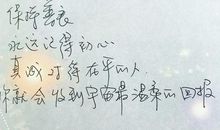 保持善良
永远记得初心
真诚对待在乎的人
你就会收到宇宙最温柔的回报